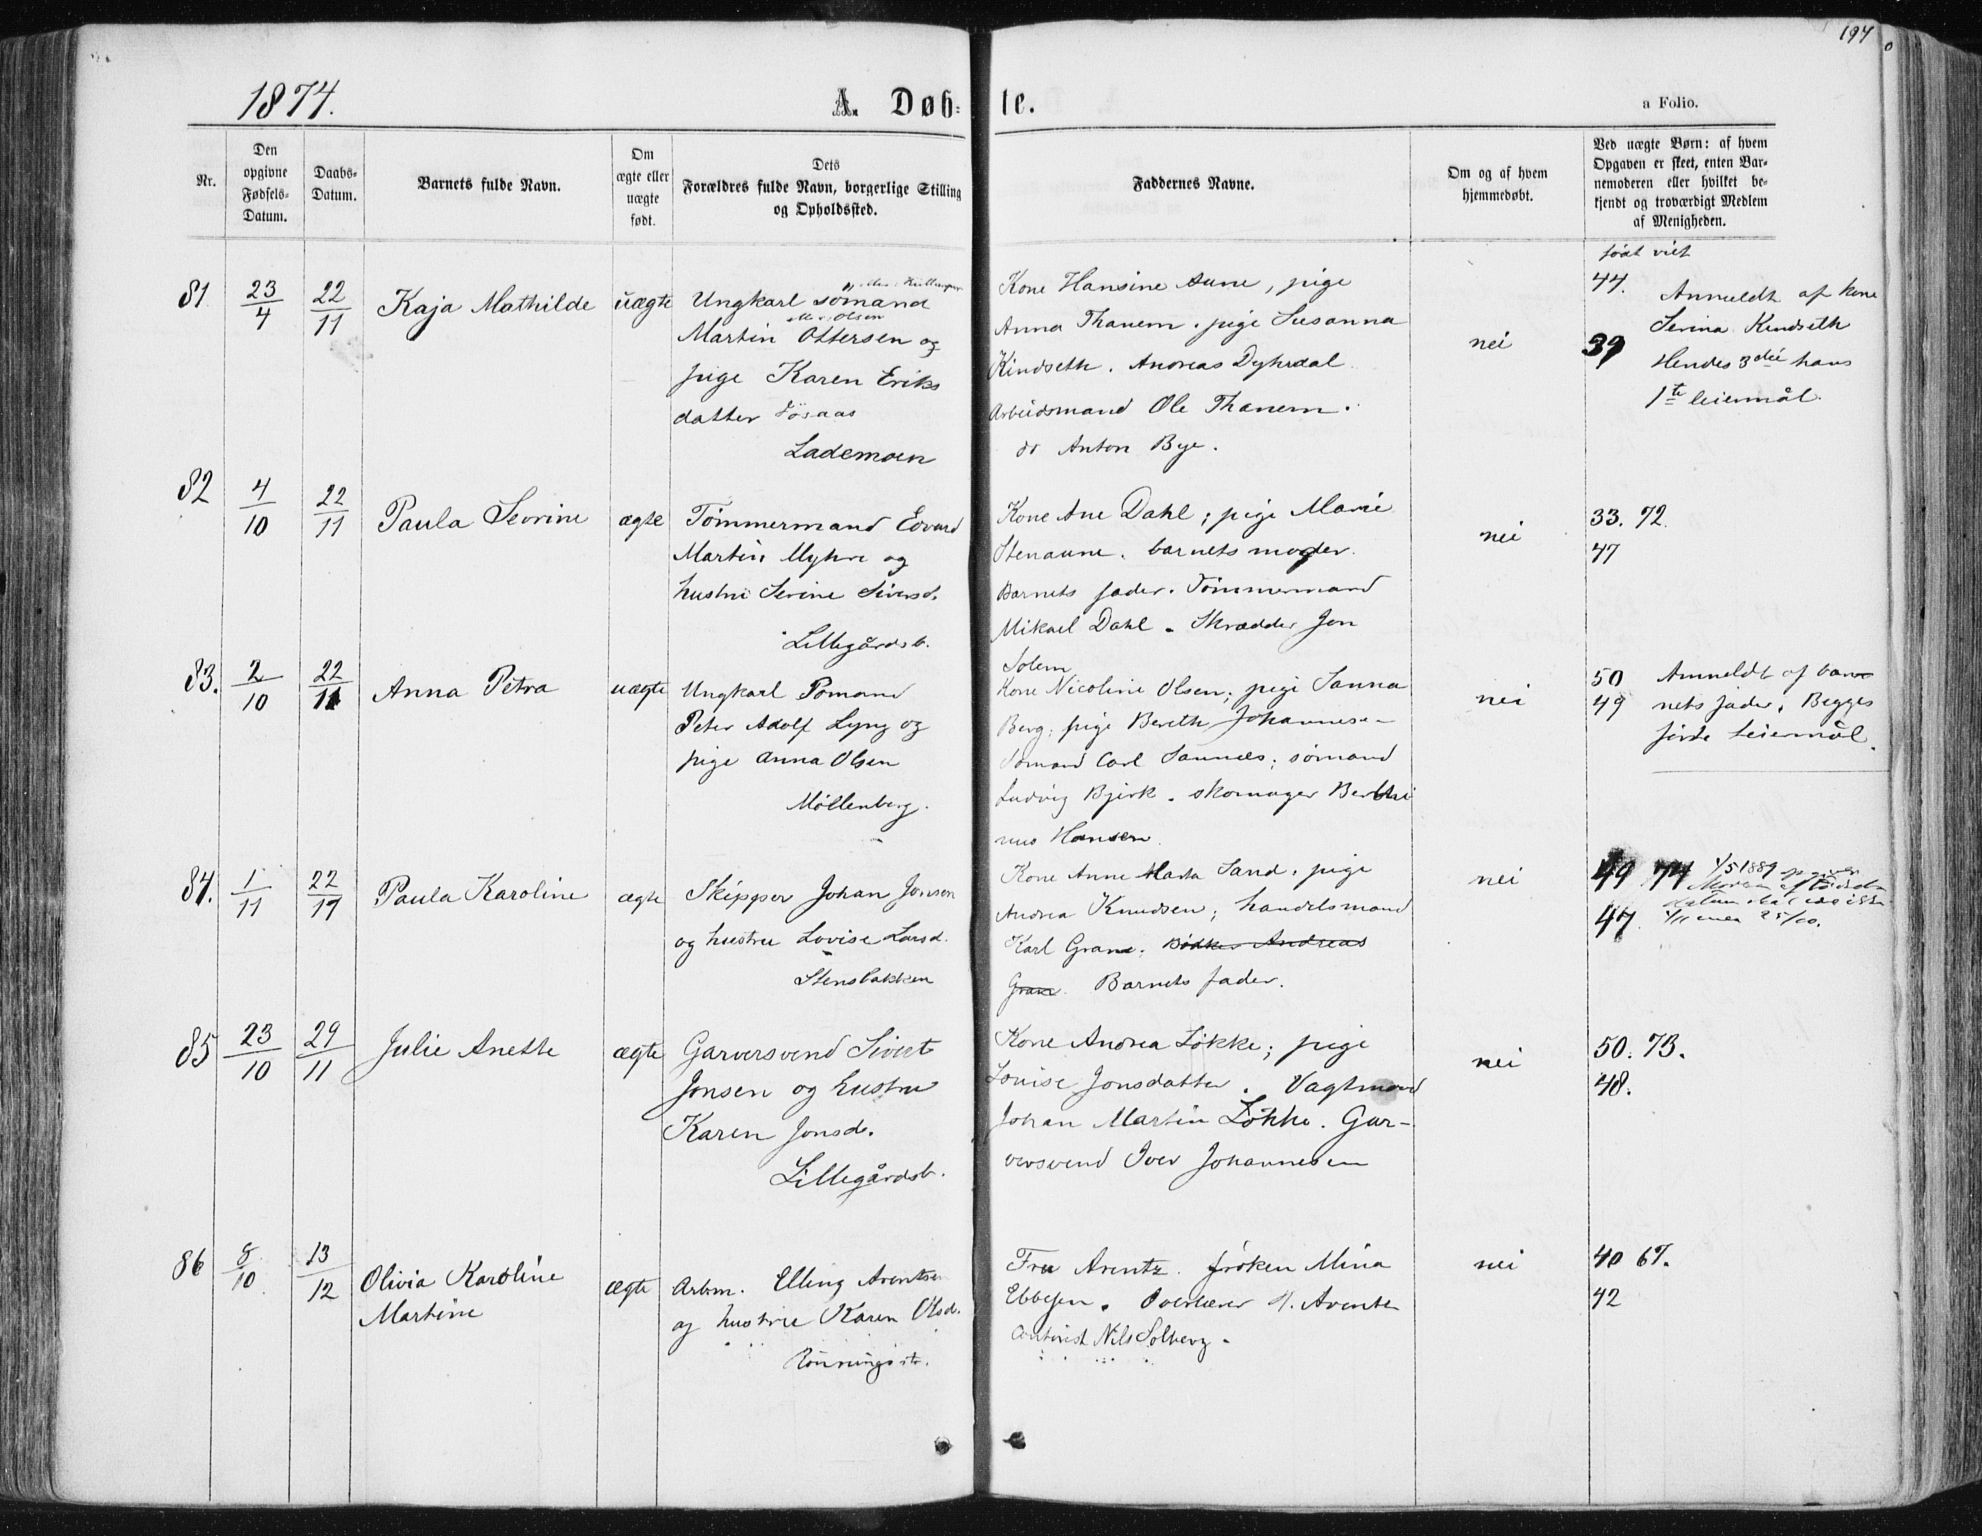 197
1874.
A. Døb-te.
a Folio.
Nr.
Den opgivne Fødsels-Datum.
Daabs-Datum.
Barnets fulde Navn.
Om ægte eller uægte født.
Dets Forældres fulde Navn, borgerlige Stilling og Opholdssted.
Faddernes Navne.
Om og af hvem hjemmedøbt.
Ved uægte Børn: af hvem Opgaven er skeet, enten Barnemoderen eller hvilket bekjendt og troværdigt Medlem af Menigheden.
81 23/4 22/11 Kaja Mathilde uægte
Ungkarl sömand
Martin Ottersen og
pige Karen Eriks
datter Fösaas
Lademoen
Kone Hansine Aune, pige
Anna Thanem. pige Susanna
Kindseth. Andreas Dyhrdal
Arbeidsmand Ole Thanem.
do Anton Bye.
nei
44.
39
Anmeldt af kone
Serina Kindseth
Hendes 3die hans
1te leiermål.
82 4/10 22/11 Paula Sevrine ægte
Tömmermand Edvard
Martin Myhre og
hustru Serine Siversd.
Lillegårdsb.
Kone Ane Dahl; pige Marie
Stenaune. barnets moder.
Barnets fader. Tömmermand
Mikael Dahl. Skrædder Jon
Solem
nei
33. 72.
47
83. 2/10 22/11 Anna Petra uægte
Ungkarl Sömand
Peter Adolf Lyng og
pige Anna Olsen
Möllenberg.
Kone Nicoline Olsen; pige Sanna
Berg; pige Bereth Johannesen
Sömand Carl Sannæs; sömand
Ludvig Bjirk. skomager Berthi
nus Hansen.
nei
50
49
Anmeldt af bar
nets fader. Begges
förste Leiermål.
84. 1/11 22/11 Paula Karoline ægte
Skipper Johan Jonsen
og hustru Lovise Larsd.
Stensbakken
Kone Anne Marta Sand. pige
Andrea Knudsen; handelsmand
Karl Gran. Bödker Andreas
Gran. Barnets fader.
nei
49 74
47.
1/5 1889
25/10.
85 23/10 29/11 Julie Anette ægte
Garversvend Sivert
Jonsen og hustru
Karen Jonsd.
Lillegårdsb.
Kone Andrea Lökke; pige
Louise Jonsdatter. Vagtmand
Johan Martin Lökke. Gar-
versvend Iver Johannesen
nei
50. 73.
48.
86 8/10 13/12 Olivia Karoline
Martine
ægte
Arbm. Elling Arentsen
og hustrue Karen Olsd.
Rönningsstr.
Fru Arentz. fröken Mina
Ebbesen. Overlærer H. Arentz
Nils Solberg.
nei
40 67.
42